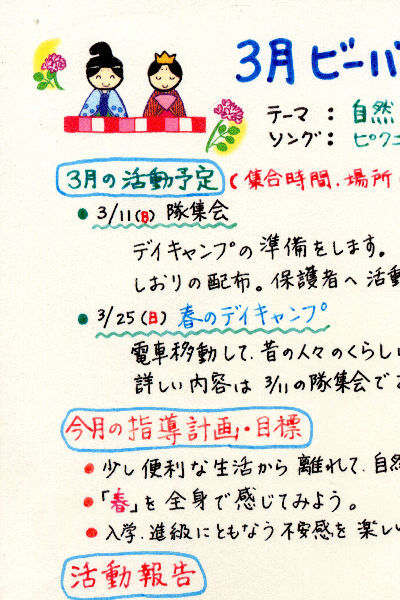 3月 ビーバ
テーマ : 自然
ソング : ピクニ
3月の活動予定 (集合時間、場所
• 3/11(日) 隊集会
デイキャンプの準備をします。
しおりの配布。保護者へ活動
• 3/25(日) 春のデイキャンプ
電車移動して、昔の人々のくらし
詳しい内容は 3/11の隊集会でお
今月の指導計画・目標
• 少し便利な生活から離れて、自然
• 「春」を全身で感じてみよう。
• 入学、進級にともなう不安感を楽し
活動報告